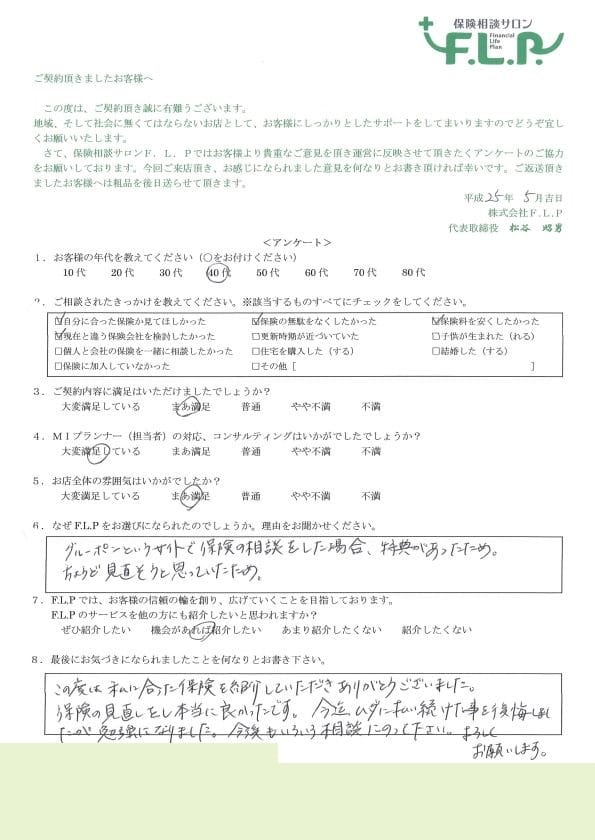 保険相談サロン
F.L.P.
Financial
Life
Plan
ご契約頂きましたお客様へ
この度は、ご契約頂き誠に有難うございます。
地域、そして社会に無くてはならないお店として、お客様にしっかりとしたサポートをしてまいりますのでどうぞ宜し
くお願いいたします。
さて、保険相談サロンF．L．Pではお客様より貴重なご意見を頂き運営に反映させて頂きたくアンケートのご協力
をお願いしております。今回ご来店頂き、お感じになられました意見を何なりとお書き頂ければ幸いです。ご返送頂き
ましたお客様へは粗品を後日送らせて頂きます。
平成25年 5月吉日
株式会社F.L.P
代表取締役 松谷 昭男
＜アンケート＞
1．お客様の年代を教えてください（○をお付けください）
10代 20代 30代 40代 50代 60代 70代 80代
2．ご相談されたきっかけを教えてください。※該当するものすべてにチェックをしてください。
☑自分に合った保険か見てほしかった ☑保険の無駄をなくしたかった ☑保険料を安くしたかった
☑現在と違う保険会社を検討したかった □更新時期が近づいていた □子供が生まれた（れる）
□個人と会社の保険を一緒に相談したかった □住宅を購入した（する） □結婚した（する）
□保険に加入していなかった □その他［ ］
3．ご契約内容に満足はいただけましたでしょうか？
大変満足している まあ満足 普通 やや不満 不満
4．MIプランナー（担当者）の対応、コンサルティングはいかがでしたでしょうか？
大変満足している まあ満足 普通 やや不満 不満
5．お店全体の雰囲気はいかがでしたか？
大変満足している まあ満足 普通 やや不満 不満
6．なぜF.L.Pをお選びになられたのでしょうか。理由をお聞かせください。
グルーポンというサイトで保険の相談をした場合、特典があったため。
ちょうど見直そうと思っていたため。
7．F.L.Pでは、お客様の信頼の輪を創り、広げていくことを目指しております。
F.L.Pのサービスを他の方にも紹介したいと思われますか？
ぜひ紹介したい 機会があれば紹介したい あまり紹介したくない 紹介したくない
8．最後にお気づきになられましたことを何なりとお書き下さい。
この度は私に合った保険を紹介していただきありがとうございました。
保険の見直しをし本当に良かったです。今迄ムダに払い続けた事を後悔しまし
たが勉強になりました。今後もいろいろ相談にのって下さい。よろしく
お願いします。